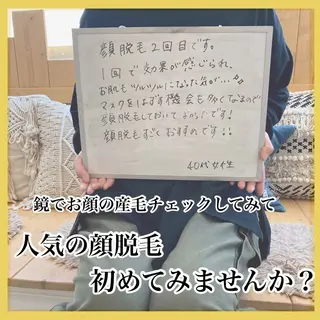 顔脱毛2回目です。
1回で効果が感じられ、
お肌もツルツルになった気が…♪♪
マスクをはずす機会も多くなるので
顔脱毛しておいてよかったです!
顔脱毛すごくおすすめです!!
40代女性
鏡でお顔の産毛チェックしてみて
人気の顔脱毛
初めてみませんか?